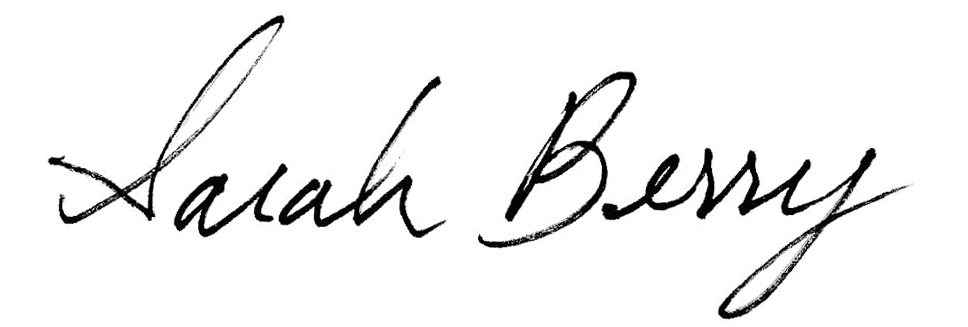 Sarah Berry